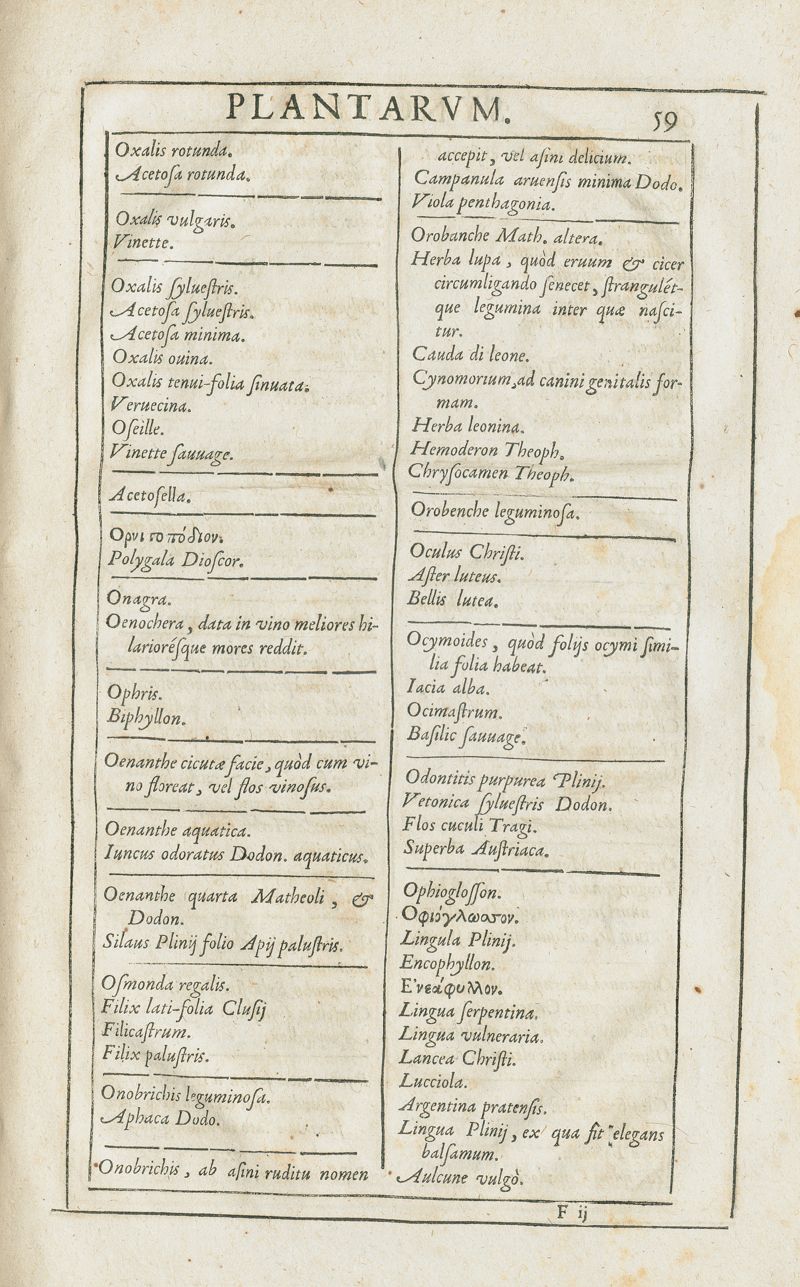 PLANTARVM.
59
Oxalis rotunda.
Acetoſa rotunda.
Oxalis vulgaris.
Vinette.
Oxalis ſylueſtris.
Acetoſa ſylueſtris.
Acetoſa minima.
Oxalis ouina.
Oxalis tenui-folia ſinuata.
Veruecina.
Oſeille.
Vinette ſauuage.
Acetoſella.
Ορνιτοπόδιον.
Polygala Dioſcor.
Onagra.
Oenochera, data in vino meliores hi-
larioréſque mores reddit.
Ophris.
Biphyllon.
Oenanthe cicutæ facie, quòd cum vi-
no floreat, vel flos vinoſus.
Oenanthe aquatica.
Iuncus odoratus Dodon. aquaticus.
Oenanthe quarta Matheoli, &
Dodon.
Silaus Plinij folio Apij paluſtris.
Oſmonda regalis.
Filix lati-folia Cluſij
Filicaſtrum.
Filix paluſtris.
Onobrichis leguminoſa.
Aphaca Dodo.
Onobrichis, ab aſini ruditu nomen
accepit, vel aſini delicium.
Campanula aruenſis minima Dodo.
Viola penthagonia.
Orobanche Math. altera.
Herba lupa, quòd eruum & cicer
circumligando ſenecet, ſtrangulét-
que legumina inter quæ naſci-
tur.
Cauda di leone.
Cynomorium, ad canini genitalis for-
mam.
Herba leonina.
Hemoderon Theoph.
Chryſocamen Theoph.
Orobenche leguminoſa.
Oculus Chriſti.
Aſter luteus.
Bellis lutea.
Ocymoides, quòd folijs ocymi ſimi-
lia folia habeat.
Iacia alba.
Ocimaſtrum.
Baſilic ſauuage.
Odontitis purpurea Plinij.
Vetonica ſylueſtris Dodon.
Flos cuculi Tragi.
Superba Auſtriaca.
Ophiogloſſon.
Οφιόγλωσσον.
Lingula Plinij.
Encophyllon.
Ε'νεάφυλλον.
Lingua ſerpentina.
Lingua vulneraria.
Lancea Chriſti.
Lucciola.
Argentina pratenſis.
Lingua Plinij, ex qua fit elegans
balſamum.
Aulcune vulgò.
F ij